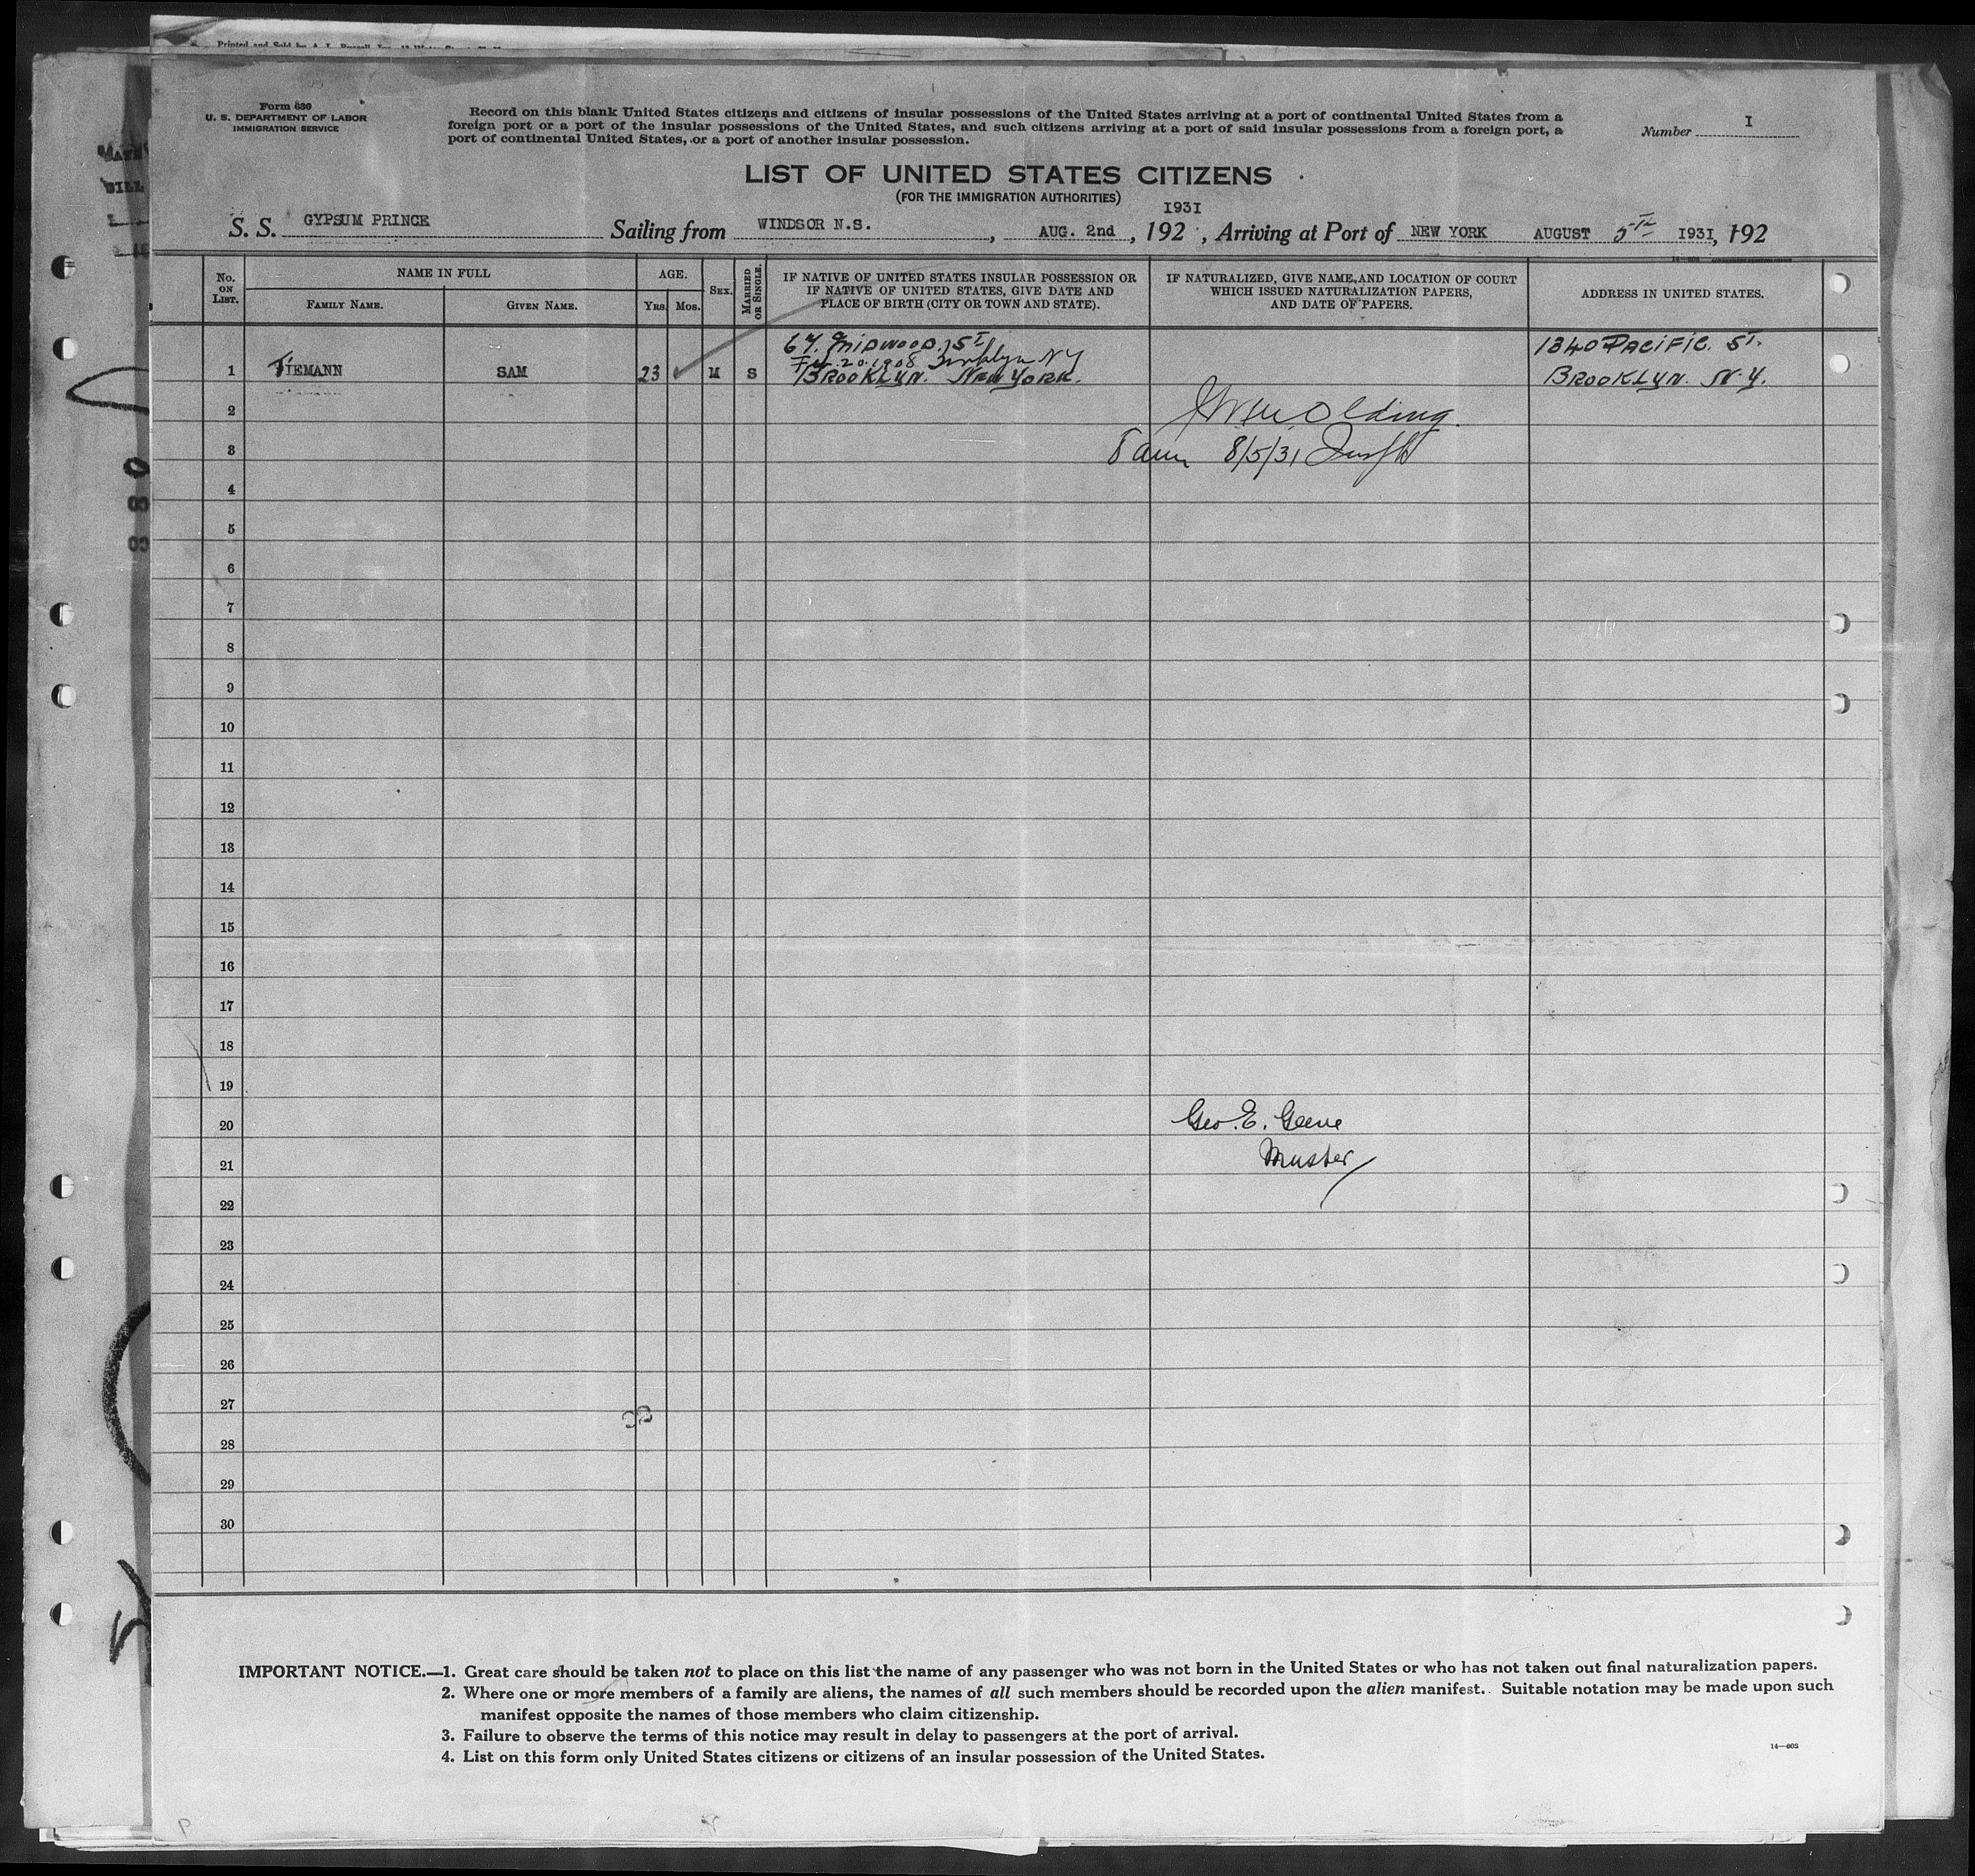 Printed and Sold by A. L.
Form 630
U. S. DEPARTMENT OF LABOR
IMMIGRATION SERVICE
Record on this blank United States citizens and citizens of insular possessions of the United States arriving at a port of continental United States from a
foreign port or a port of the insular possessions of the United States, and such citizens arriving at a port of said insular possessions from a foreign port, a
port of continental United States, or a port of another insular possession.
Number I
LIST OF UNITED STATES CITIZENS
(FOR THE IMMIGRATION AUTHORITIES)
1931
S. S. GYPSUM PRINCE Sailing from WINDSOR N.S. , AUG. 2nd , 192 , Arriving at Port of NEW YORK AUGUST 5TH 1931, 192
No. ON LIST.
NAME IN FULL
FAMILY NAME.
GIVEN NAME.
AGE.
Yrs. Mos.
SEX.
MARRIED OR SINGLE.
IF NATIVE OF UNITED STATES INSULAR POSSESSION OR
IF NATIVE OF UNITED STATES, GIVE DATE AND
PLACE OF BIRTH (CITY OR TOWN AND STATE).
IF NATURALIZED, GIVE NAME AND LOCATION OF COURT
WHICH ISSUED NATURALIZATION PAPERS,
AND DATE OF PAPERS.
ADDRESS IN UNITED STATES.
67. MIDWOOD. ST
20.1908 Brooklyn NY
1340 PACIFIC. ST.
1 TIEMANN SAM 23 M S BROOKLYN. NEW YORK. BROOKLYN. N.Y.
2
3 8/5/31
4
5
6
7
8
9
10
11
12
13
14
15
16
17
18
19
20 Geo. E.
21 Master
22
23
24
25
26
27
28
29
30
IMPORTANT NOTICE.—1. Great care should be taken not to place on this list the name of any passenger who was not born in the United States or who has not taken out final naturalization papers.
2. Where one or more members of a family are aliens, the names of all such members should be recorded upon the alien manifest. Suitable notation may be made upon such
manifest opposite the names of those members who claim citizenship.
3. Failure to observe the terms of this notice may result in delay to passengers at the port of arrival.
4. List on this form only United States citizens or citizens of an insular possession of the United States.